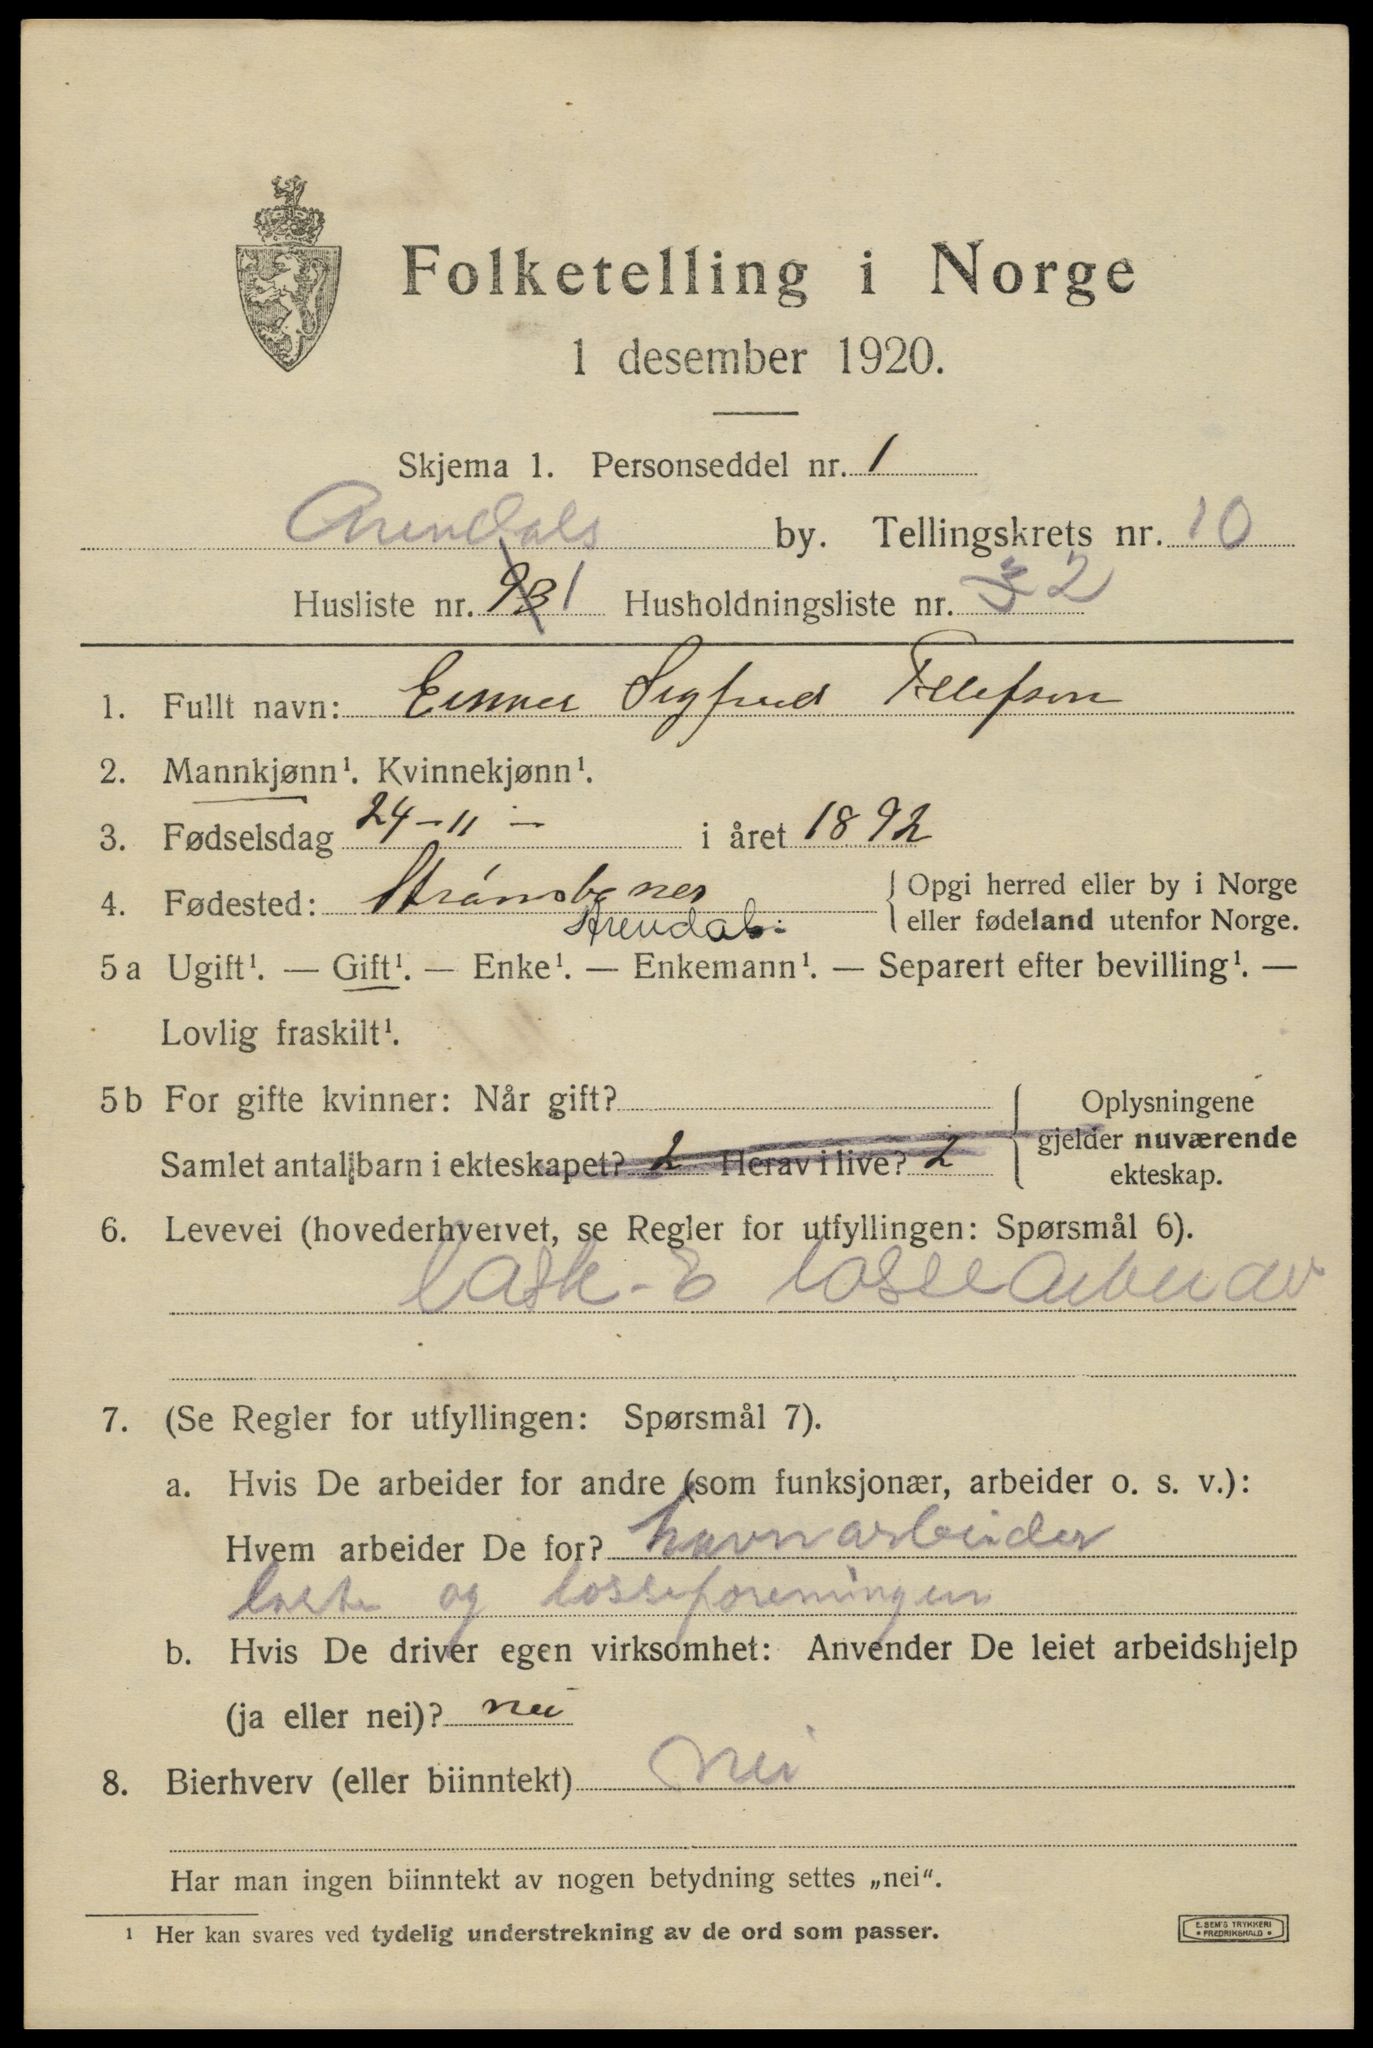 Folketelling i Norge
1 desember 1920.
Skjema 1. Personseddel nr. 1
Arendals by. Tellingskrets nr. 10
Husliste nr. 93 1 Husholdningsliste nr. 3 2
1. Fullt navn: Einer Sigfred Tellefsen
2. Mannkjønn¹. Kvinnekjønn¹.
3. Fødselsdag 24-11- i året 1892
4. Fødested: Strømsbo nes
Arendal
{ Opgi herred eller by i Norge
eller fødeland utenfor Norge.
5a Ugift¹. — Gift¹. — Enke¹. — Enkemann¹. — Separert efter bevilling¹. —
Lovlig fraskilt¹.
5b For gifte kvinner: Når gift?
Samlet antal barn i ekteskapet? 2 Herav i live? 2
{ Oplysningene
gjelder nuværende
ekteskap.
6. Levevei (hovederhvervet, se Regler for utfyllingen: Spørsmål 6).
Last- & lossearbeider
7. (Se Regler for utfyllingen: Spørsmål 7).
a. Hvis De arbeider for andre (som funksjonær, arbeider o. s. v.):
Hvem arbeider De for? havnarbeider
laste og losseforeningen
b. Hvis De driver egen virksomhet: Anvender De leiet arbeidshjelp
(ja eller nei)? nei
8. Bierhverv (eller biinntekt) Nei
Har man ingen biinntekt av nogen betydning settes „nei“.
¹ Her kan svares ved tydelig understrekning av de ord som passer.
E. SEM'S TRYKKERI
FREDRIKSHALD